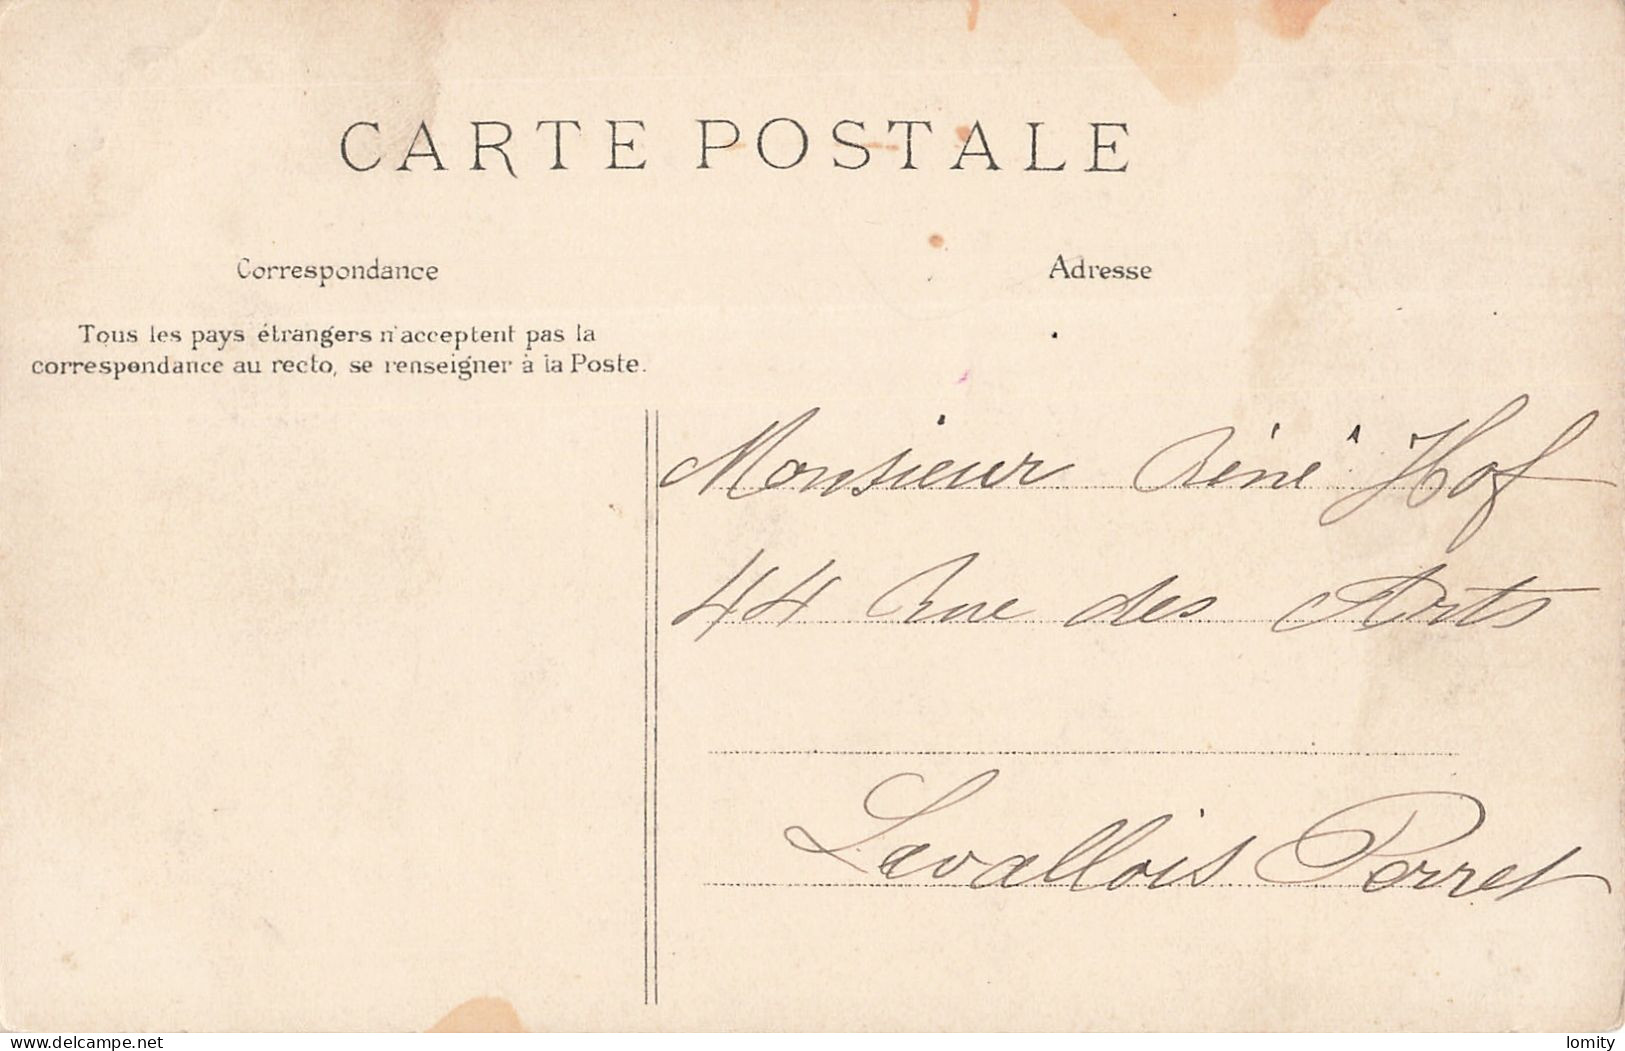 CARTE POSTALE
Correspondance
Adresse
Tous les pays étrangers n'acceptent pas la
correspondance au recto, se renseigner à la Poste.
Monsieur Réné Hof
44 Rue des Arts
Levallois Perret
delcampe.net
lomity